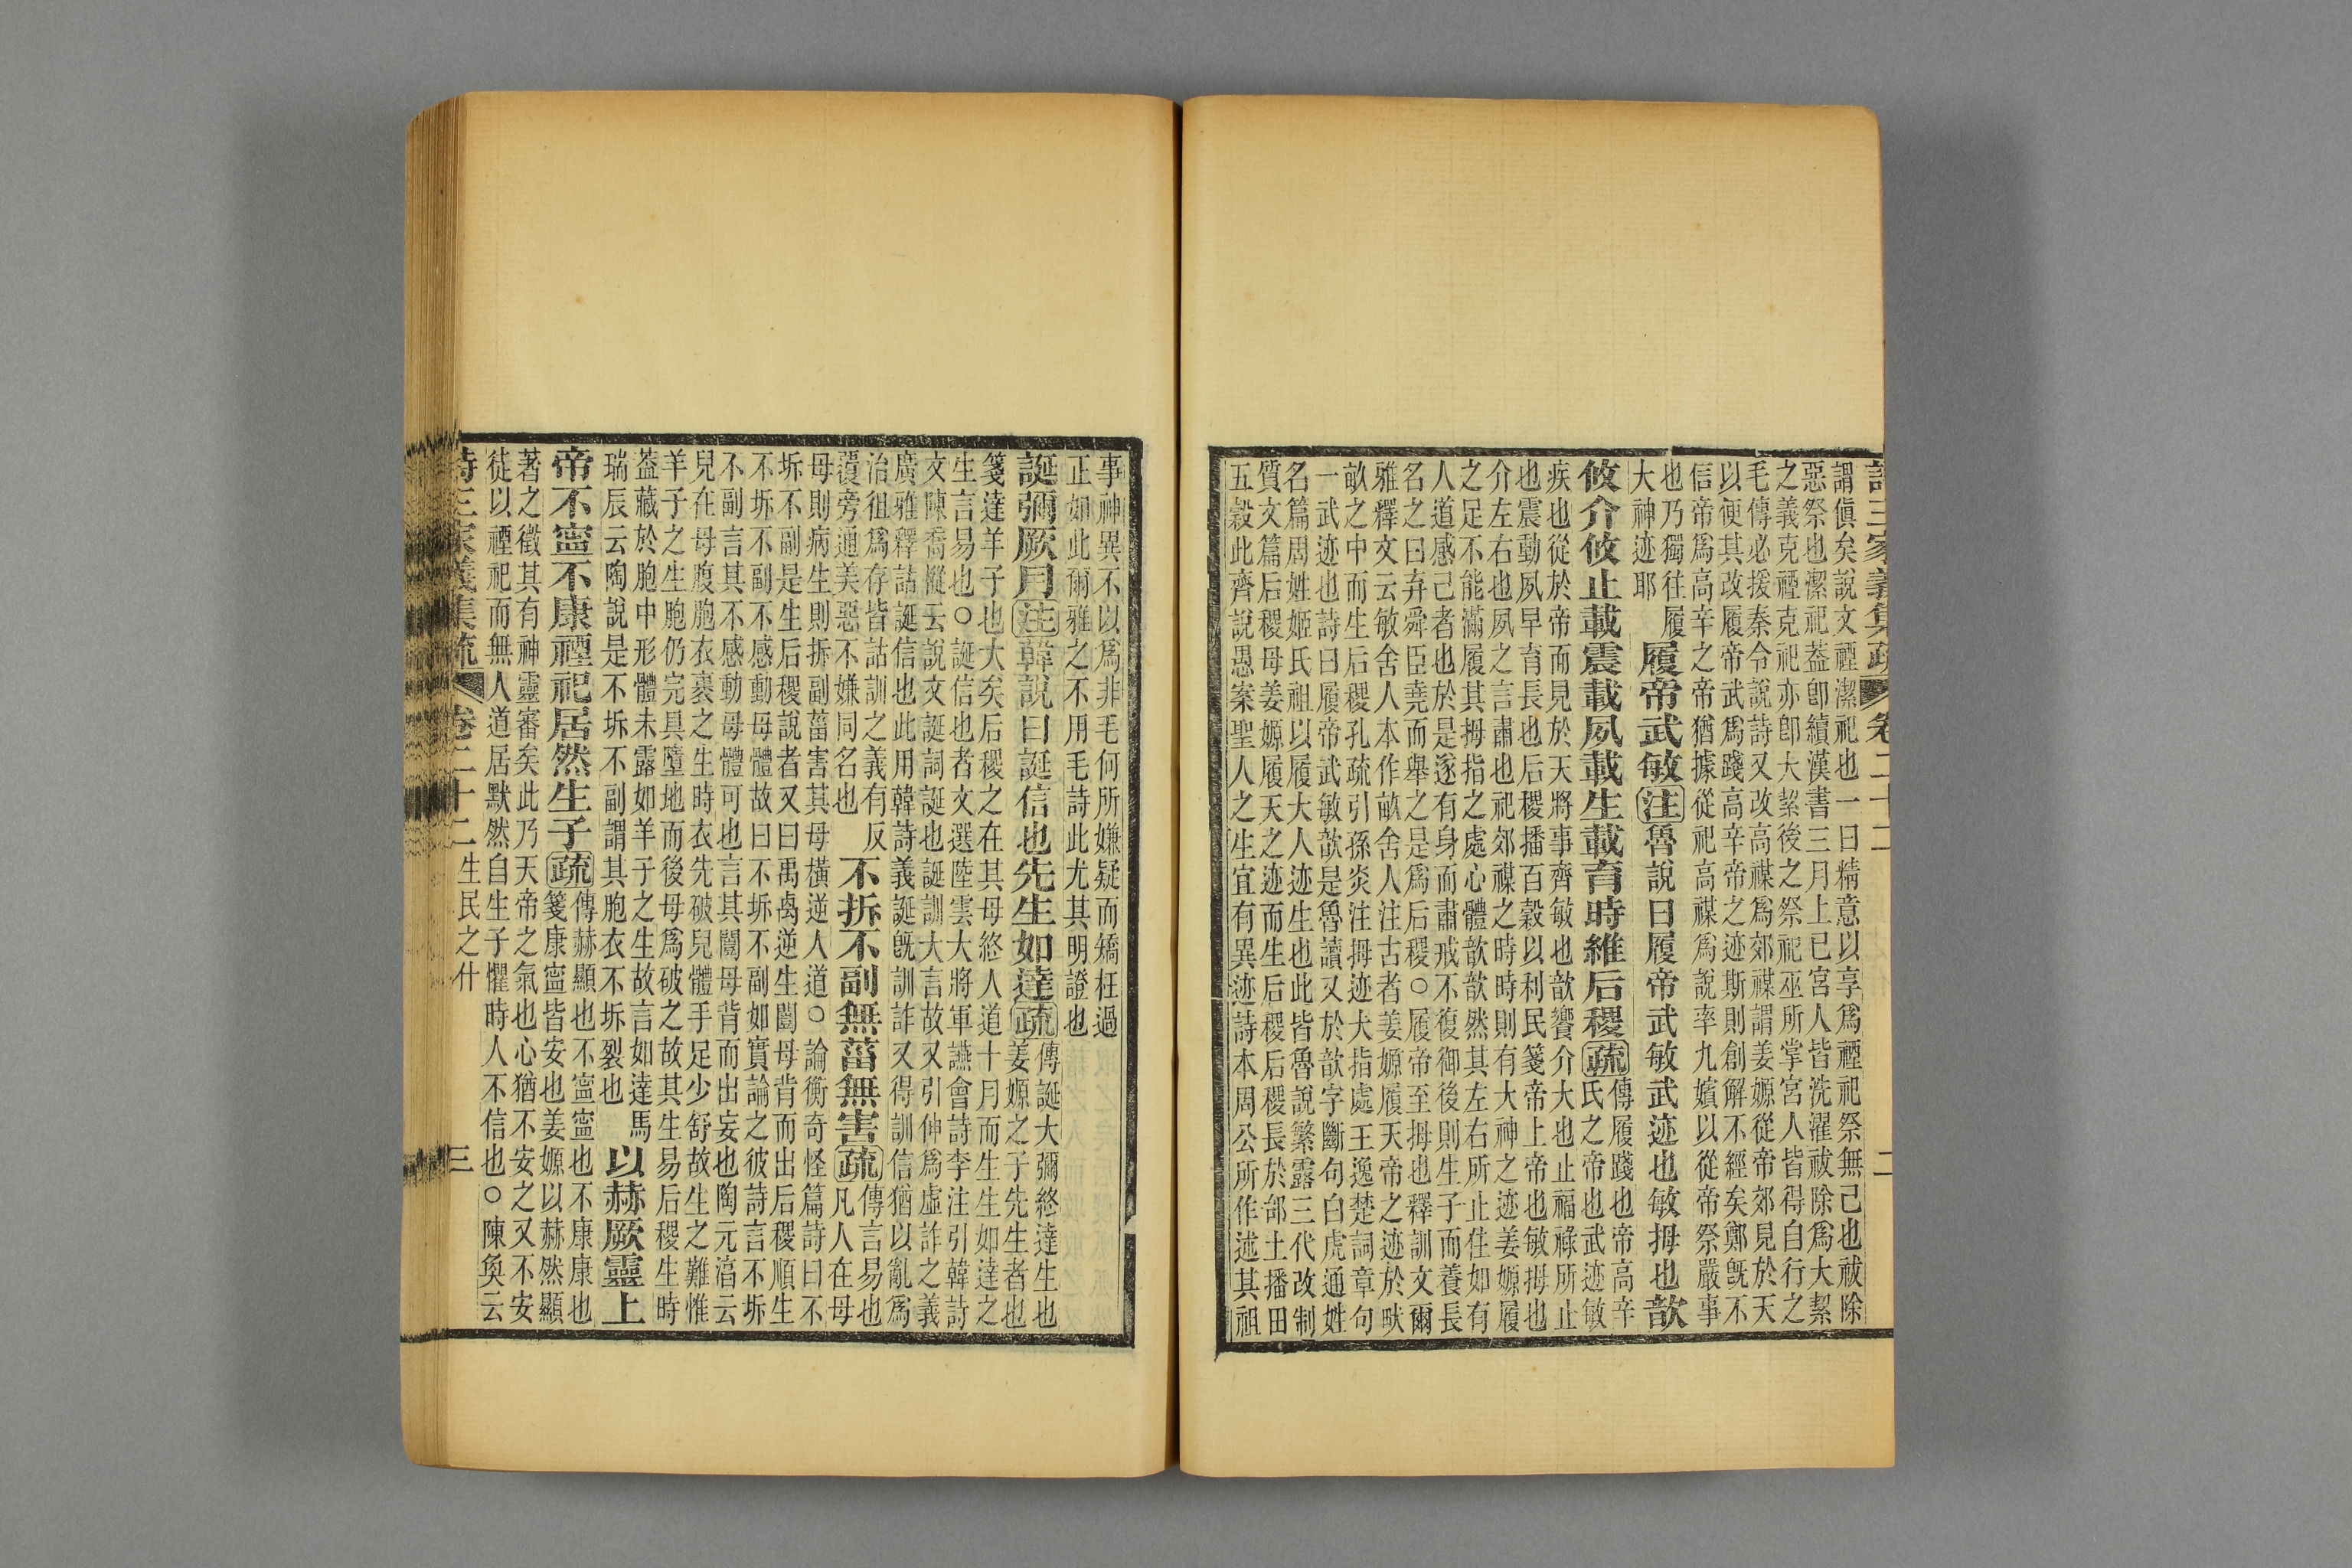 詩三家義集疏 卷二十二 二
謂傎矣說文禋潔祀也一曰精意以享爲禋祀祭無已也祓除
惡祭也潔祀葢卽續漢書三月上巳宮人皆洗濯祓除爲大絜
之義克禋克祀亦卽大絜後之祭祀巫所掌宮人皆得自行之
毛傳必援秦令說詩又改高禖爲郊禖謂姜嫄從帝郊見於天
以便其改履帝武爲踐高辛帝之迹斯則創解不經矣鄭旣不
信帝爲高辛之帝猶據從祀高禖爲說率九嬪以從帝祭嚴事
也乃獨往履
大神迹耶
履帝武敏注魯說曰履帝武敏武迹也敏拇也歆
攸介攸止載震載夙載生載育時維后稷疏
傳履踐也帝高辛
氏之帝也武迹敏
疾也從於帝而見於天將事齊敏也歆饗介大也止福祿所止
也震動夙早育長也后稷播百穀以利民箋帝上帝也敏拇也
介左右也夙之言肅也祀郊禖之時時則有大神之迹姜嫄履
之足不能滿履其拇指之處心體歆歆然其左右所止住如有
人道感己者也於是遂有身而肅戒不復御後則生子而養長
名之曰弃舜臣堯而舉之是爲后稷○履帝至拇也釋訓文爾
雅釋文云敏舍人本作畝舍人注古者姜嫄履天帝之迹於畎
畝之中而生后稷孔疏引孫炎注拇迹大指處王逸楚詞章句
一武迹也詩曰履帝武敏歆是魯讀又於歆字斷句白虎通姓
名篇周姓姬氏祖以履大人迹生也此皆魯說繁露三代改制
質文篇后稷母姜嫄履天之迹而生后稷后稷長於邰土播田
五穀此齊說愚案聖人之生宜有異迹詩本周公所作述其祖
事神異不以爲非毛何所嫌疑而矯枉過
正如此爾雅之不用毛詩此尤其明證也
誕彌厥月注韓說曰誕信也先生如達疏
傳誕大彌終達生也
姜嫄之子先生者也
箋達羊子也大矣后稷之在其母終人道十月而生生如達之
生言易也○誕信也者文選陸雲大將軍讌會詩李注引韓詩
文陳喬樅云說文誕詞誕也誕訓大言故又引伸爲虛詐之義
廣雅釋詁誕信也此用韓詩義誕旣訓詐又得訓信猶以亂爲
治徂爲存皆詁訓之義有反
覆旁通美惡不嫌同名也
不拆不副無菑無害疏
傳言易也
凡人在母
母則病生則拆副菑害其母橫逆人道○論衡奇怪篇詩曰不
坼不副是生后稷說者又曰禹卨逆生闓母背而出后稷順生
不坼不副不感動母體故曰不坼不副如實論之彼詩言不坼
不副言其不感動母體可也言其闓母背而出妄也陶元淳云
兒在母腹胞衣裹之生時衣先破兒體手足少舒故生之難惟
羊子之生胞仍完具墮地而後母爲破之故其生易后稷生時
葢藏於胞中形體未露如羊子之生故言如達馬
瑞辰云陶說是不坼不副謂其胞衣不坼裂也
以赫厥靈上
帝不寧不康禋祀居然生子疏
傳赫顯也不寧寧也不康康也
箋康寧皆安也姜嫄以赫然顯
著之徵其有神靈審矣此乃天帝之氣也心猶不安之又不安
徒以禋祀而無人道居默然自生子懼時人不信也○陳奐云
詩三家義集疏 卷二十二 生民之什 三